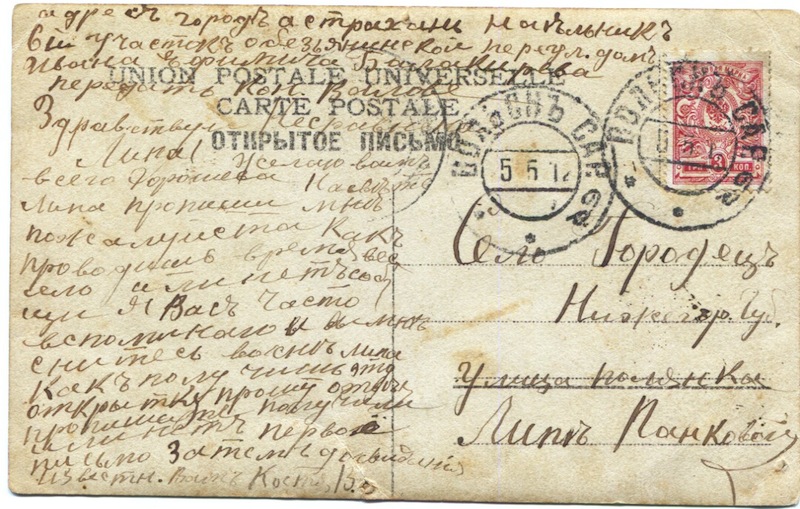 адресъ городъ астрахани
6й участкъ обезьянинской переул. домъ
Ивана Ефимича
передать
UNION POSTALE UNIVERSELLE
CARTE POSTALE
ОТКРЫТОЕ ПИСЬМО
Здравствуй
Липа! Желаю вамъ
всего хорошева
Липа пропиши мнѣ
пожалуиста какъ
проводишь время вес
ело или нетъ сооб
щи Я Васъ часто
вспоминаю и вы мнѣ
снитесь восне Липа
какъ получишь эту
открытку прошу
пропишите получили
или нетъ первое
письмо Затемъ досвидания
известн. Вамъ Костя
5 5 12
3
КОП.
Село Городецъ
Нижегор. Губ.
Улица полянка
Липѣ Панковой